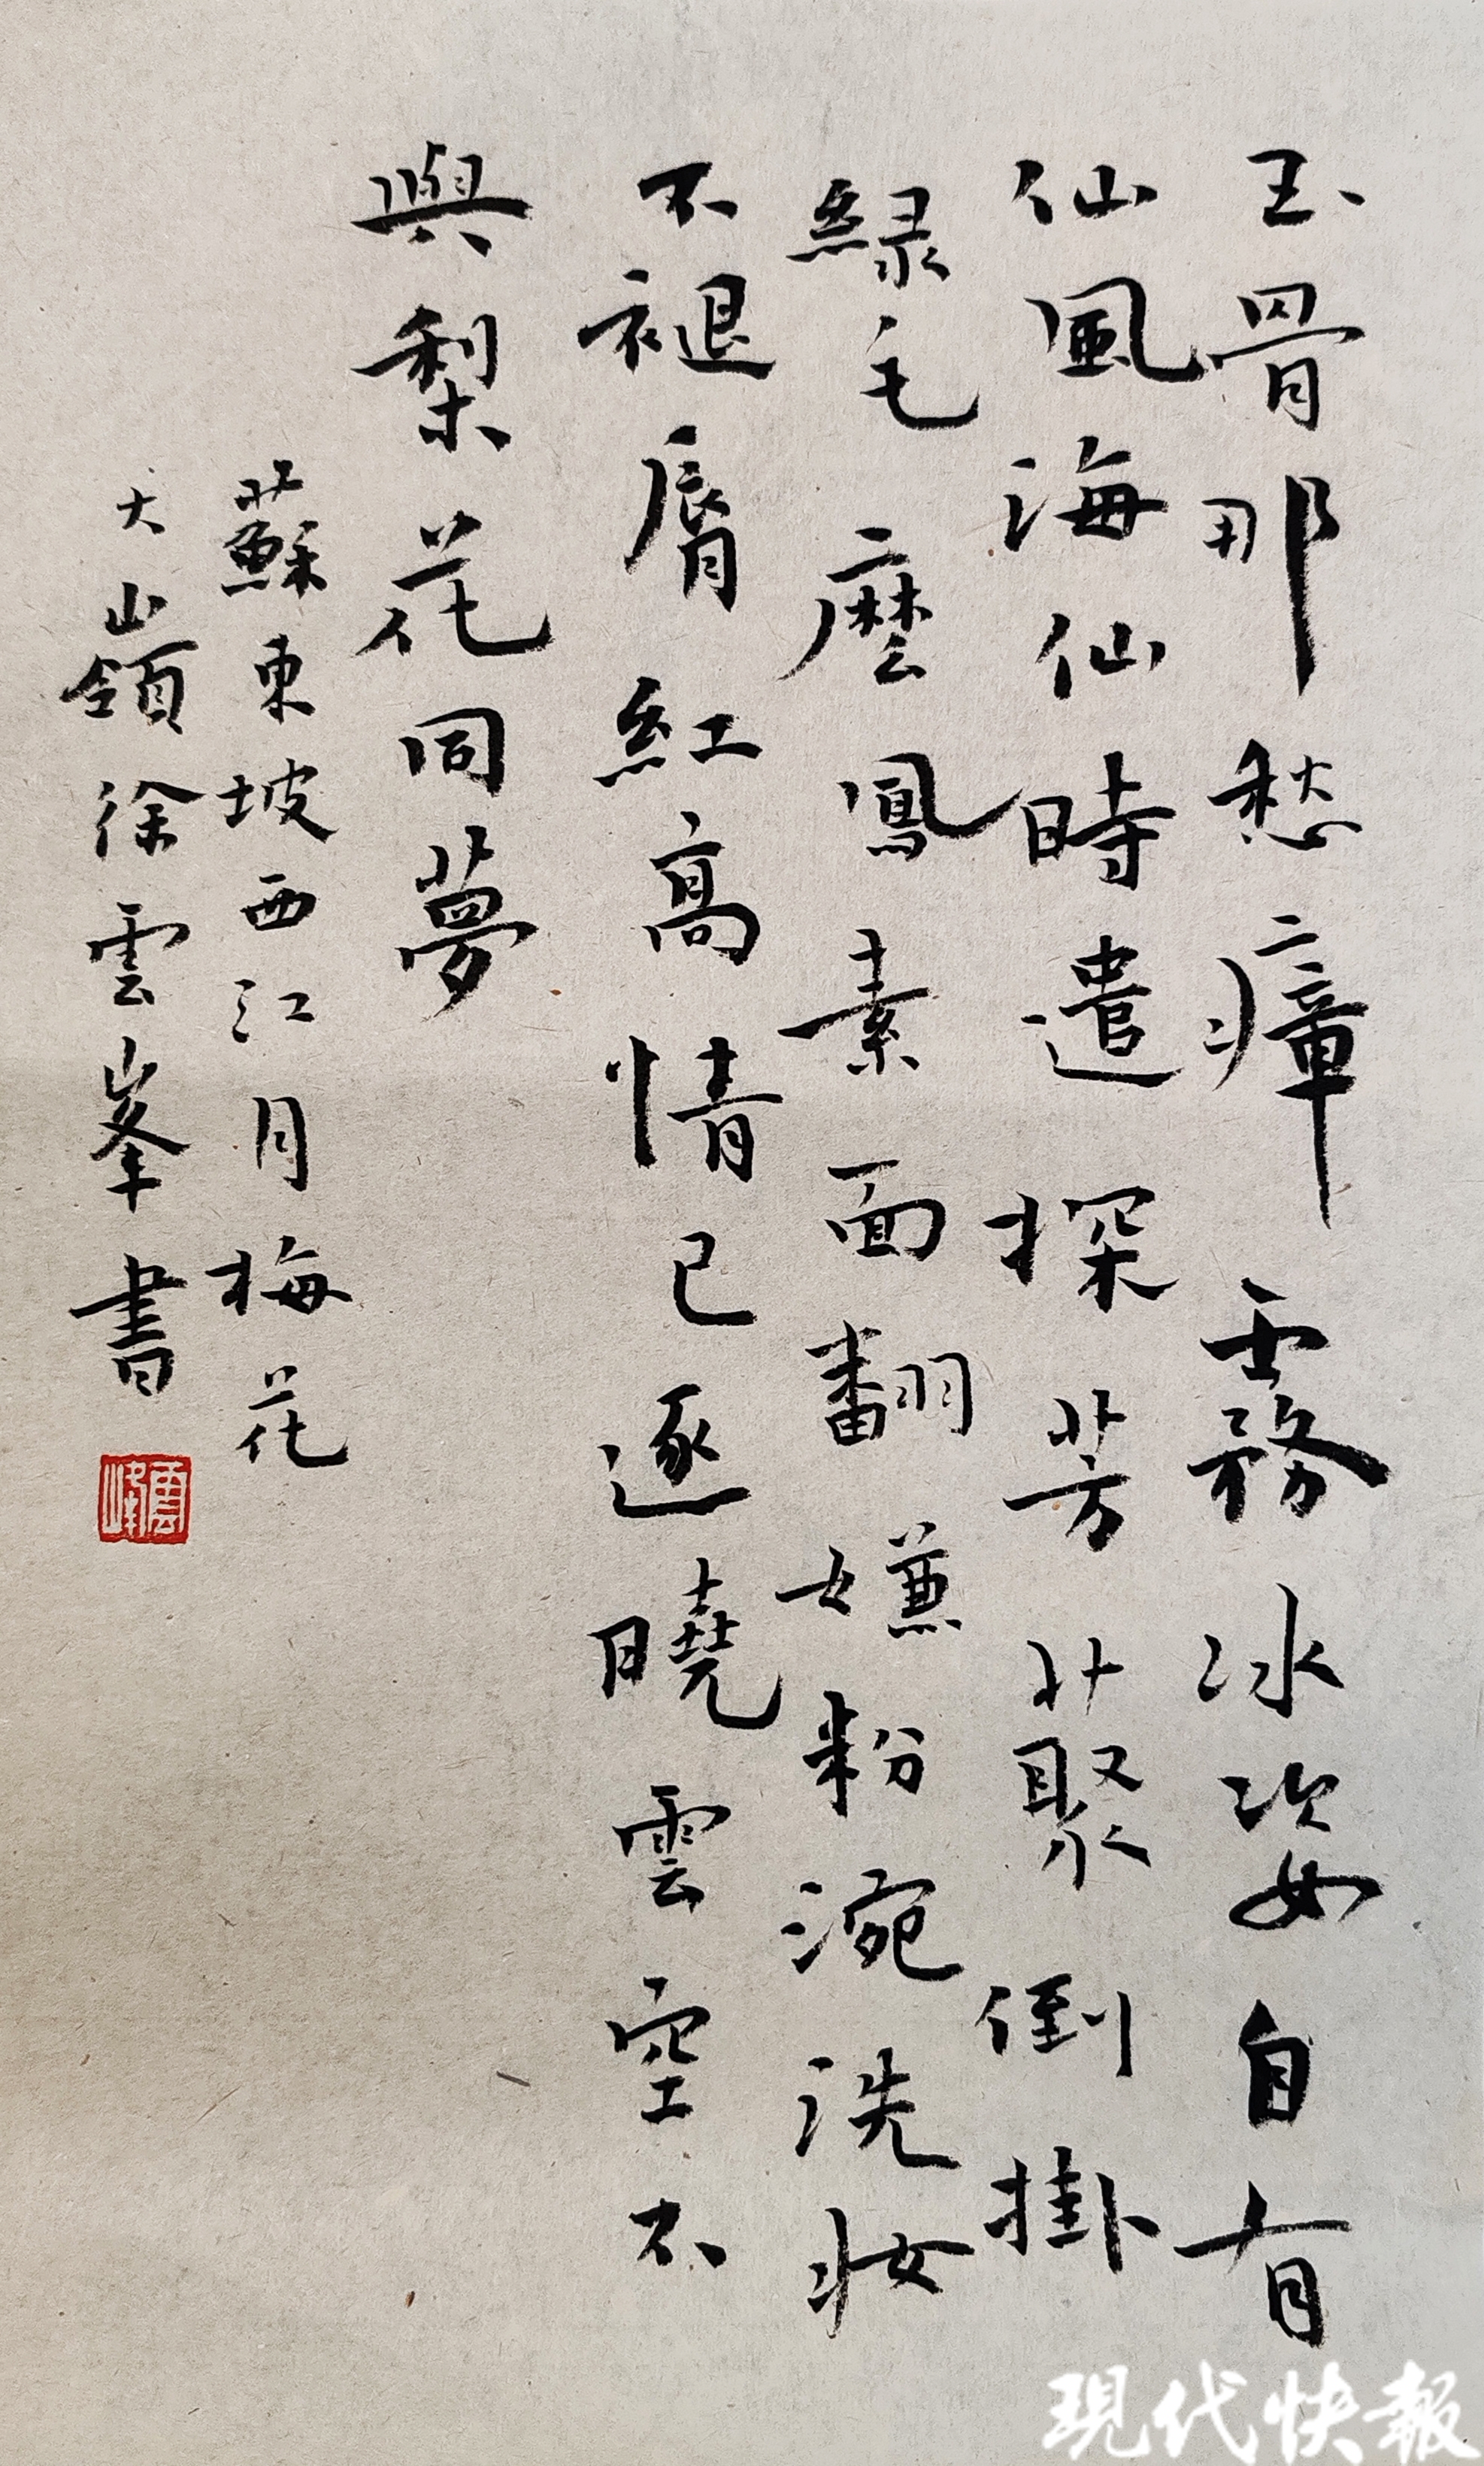 玉骨那愁瘴霧冰姿自有
仙風海仙時遣探芳叢倒掛
緑毛麽鳳素面翻嫌粉涴洗妝
不褪脣紅高情已逐曉雲空不
與梨花同夢
蘇東坡西江月梅花
大嶺徐雲峯書
雲峰
現代快報